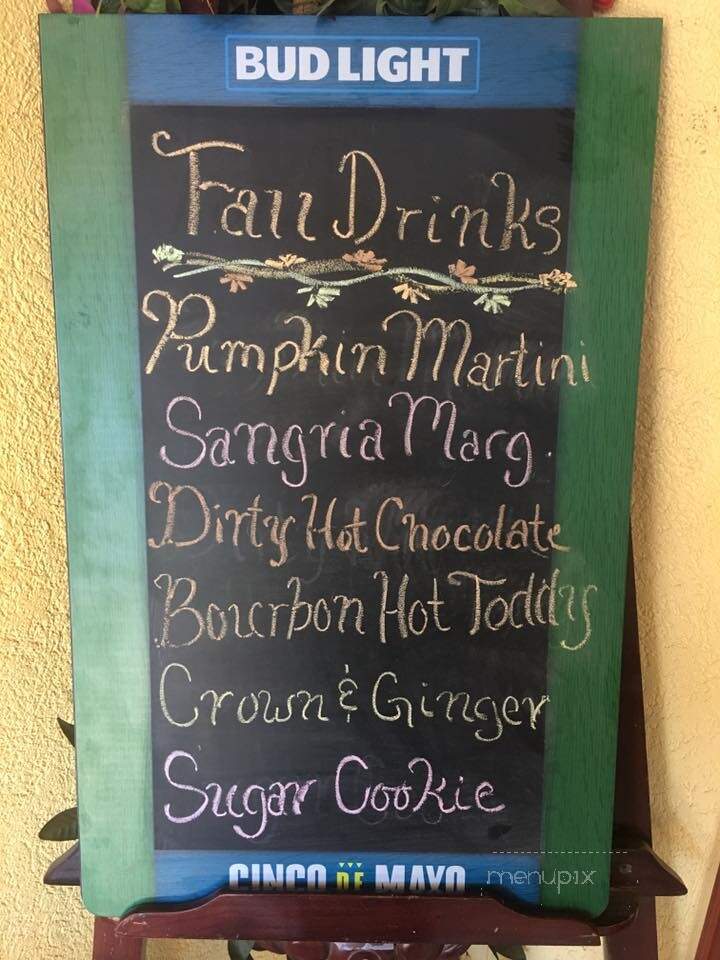 BUD LIGHT
Fall Drinks
Pumpkin Martini
Sangria Marg.
Dirty Hot Chocolate
Bourbon Hot Toddy
Crown & Ginger
Sugar Cookie
CINCO DE MAYO
menupix